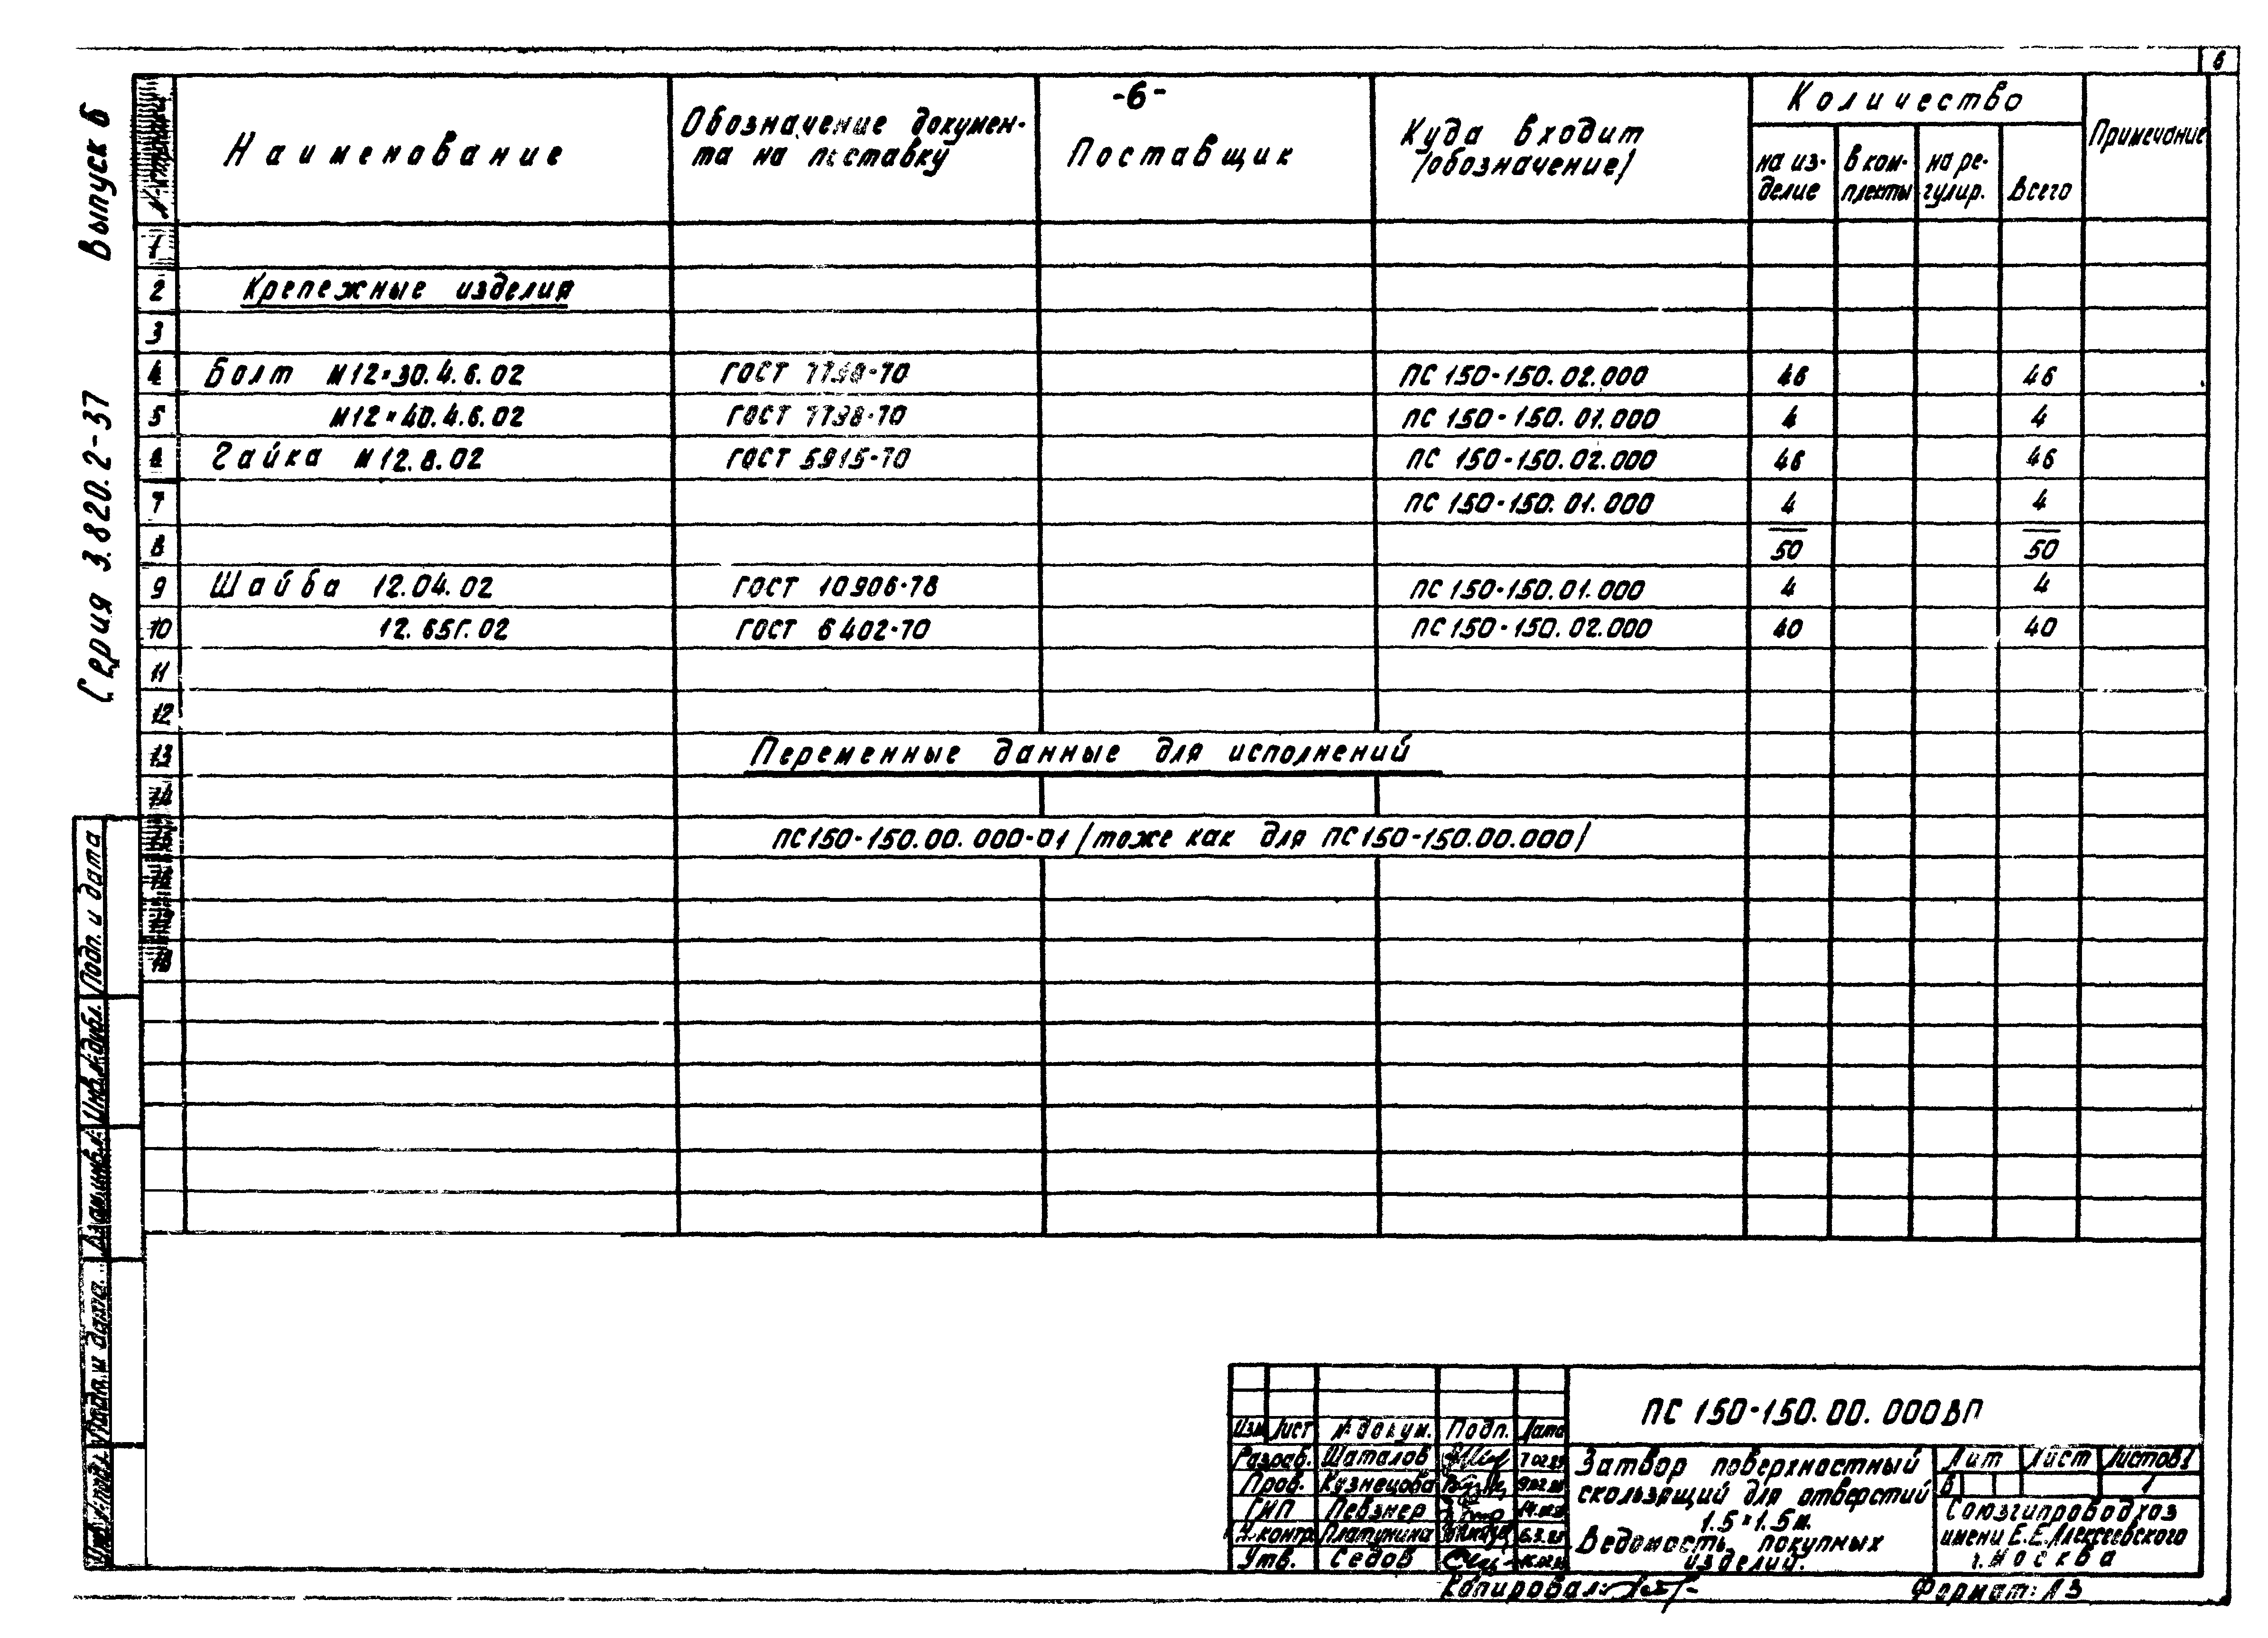 6
-6-
Выпуск 6
Серия 3.820.2-37
Наименование
Обозначение докумен-
та на поставку
Поставщик
Куда входит
/обозначение/
Количество
на из-
делие
в ком-
плекты
на ре-
гулир.
Всего
Примечание
1
2 Крепежные изделия
3
4 Болт М12×30.4.6.02 ГОСТ 7798-70 ПС 150-150.02.000 46 46
5 М12×40.4.6.02 ГОСТ 7798-70 ПС 150-150.01.000 4 4
6 Гайка М12.8.02 ГОСТ 5915-70 ПС 150-150.02.000 46 46
7 ПС 150-150.01.000 4 4
8 50 50
9 Шайба 12.04.02 ГОСТ 10906-78 ПС 150-150.01.000 4 4
10 12.65Г.02 ГОСТ 6402-70 ПС 150-150.02.000 40 40
11
12
13 Переменные данные для исполнений
14
15 ПС150-150.00.000-01 /тоже как для ПС150-150.00.000/
16
17
18
Подп. и дата
Инв.№дубл.
Взам.инв.№
Подп. и дата
Инв.№подл.
Изм Лист № докум. Подп. Дата
Разраб. Шаталов
Пров. Кузнецова
ГИП Певзнер
Н.контр. Платунина
Утв. Седов
ПС 150-150.00.000ВП
Затвор поверхностный
скользящий для отверстий
1.5×1.5м.
Ведомость покупных
изделий.
Лит Лист Листов1
1
Союзгипроводхоз
имени Е.Е.Алексеевского
г.Москва
Копировал:
Формат: А3